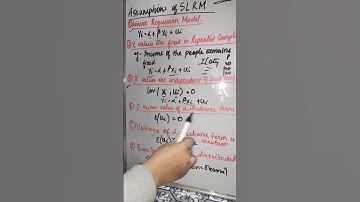 Assumptions of SLRM
① Linear Regression Model.
Yi = α + βxi + ui
② X values are fixed in Repeated Sample
eg. Income of the people remaining
fixed
Yi = α + βxi + ui
③ X values are independent of
Cov (Xi, Ui) = 0
Yi = α + βxi + ui
④ 0 mean value of disturbance term
E(Ui) = 0
⑤ Variance of disturbance term is
constant
distributed